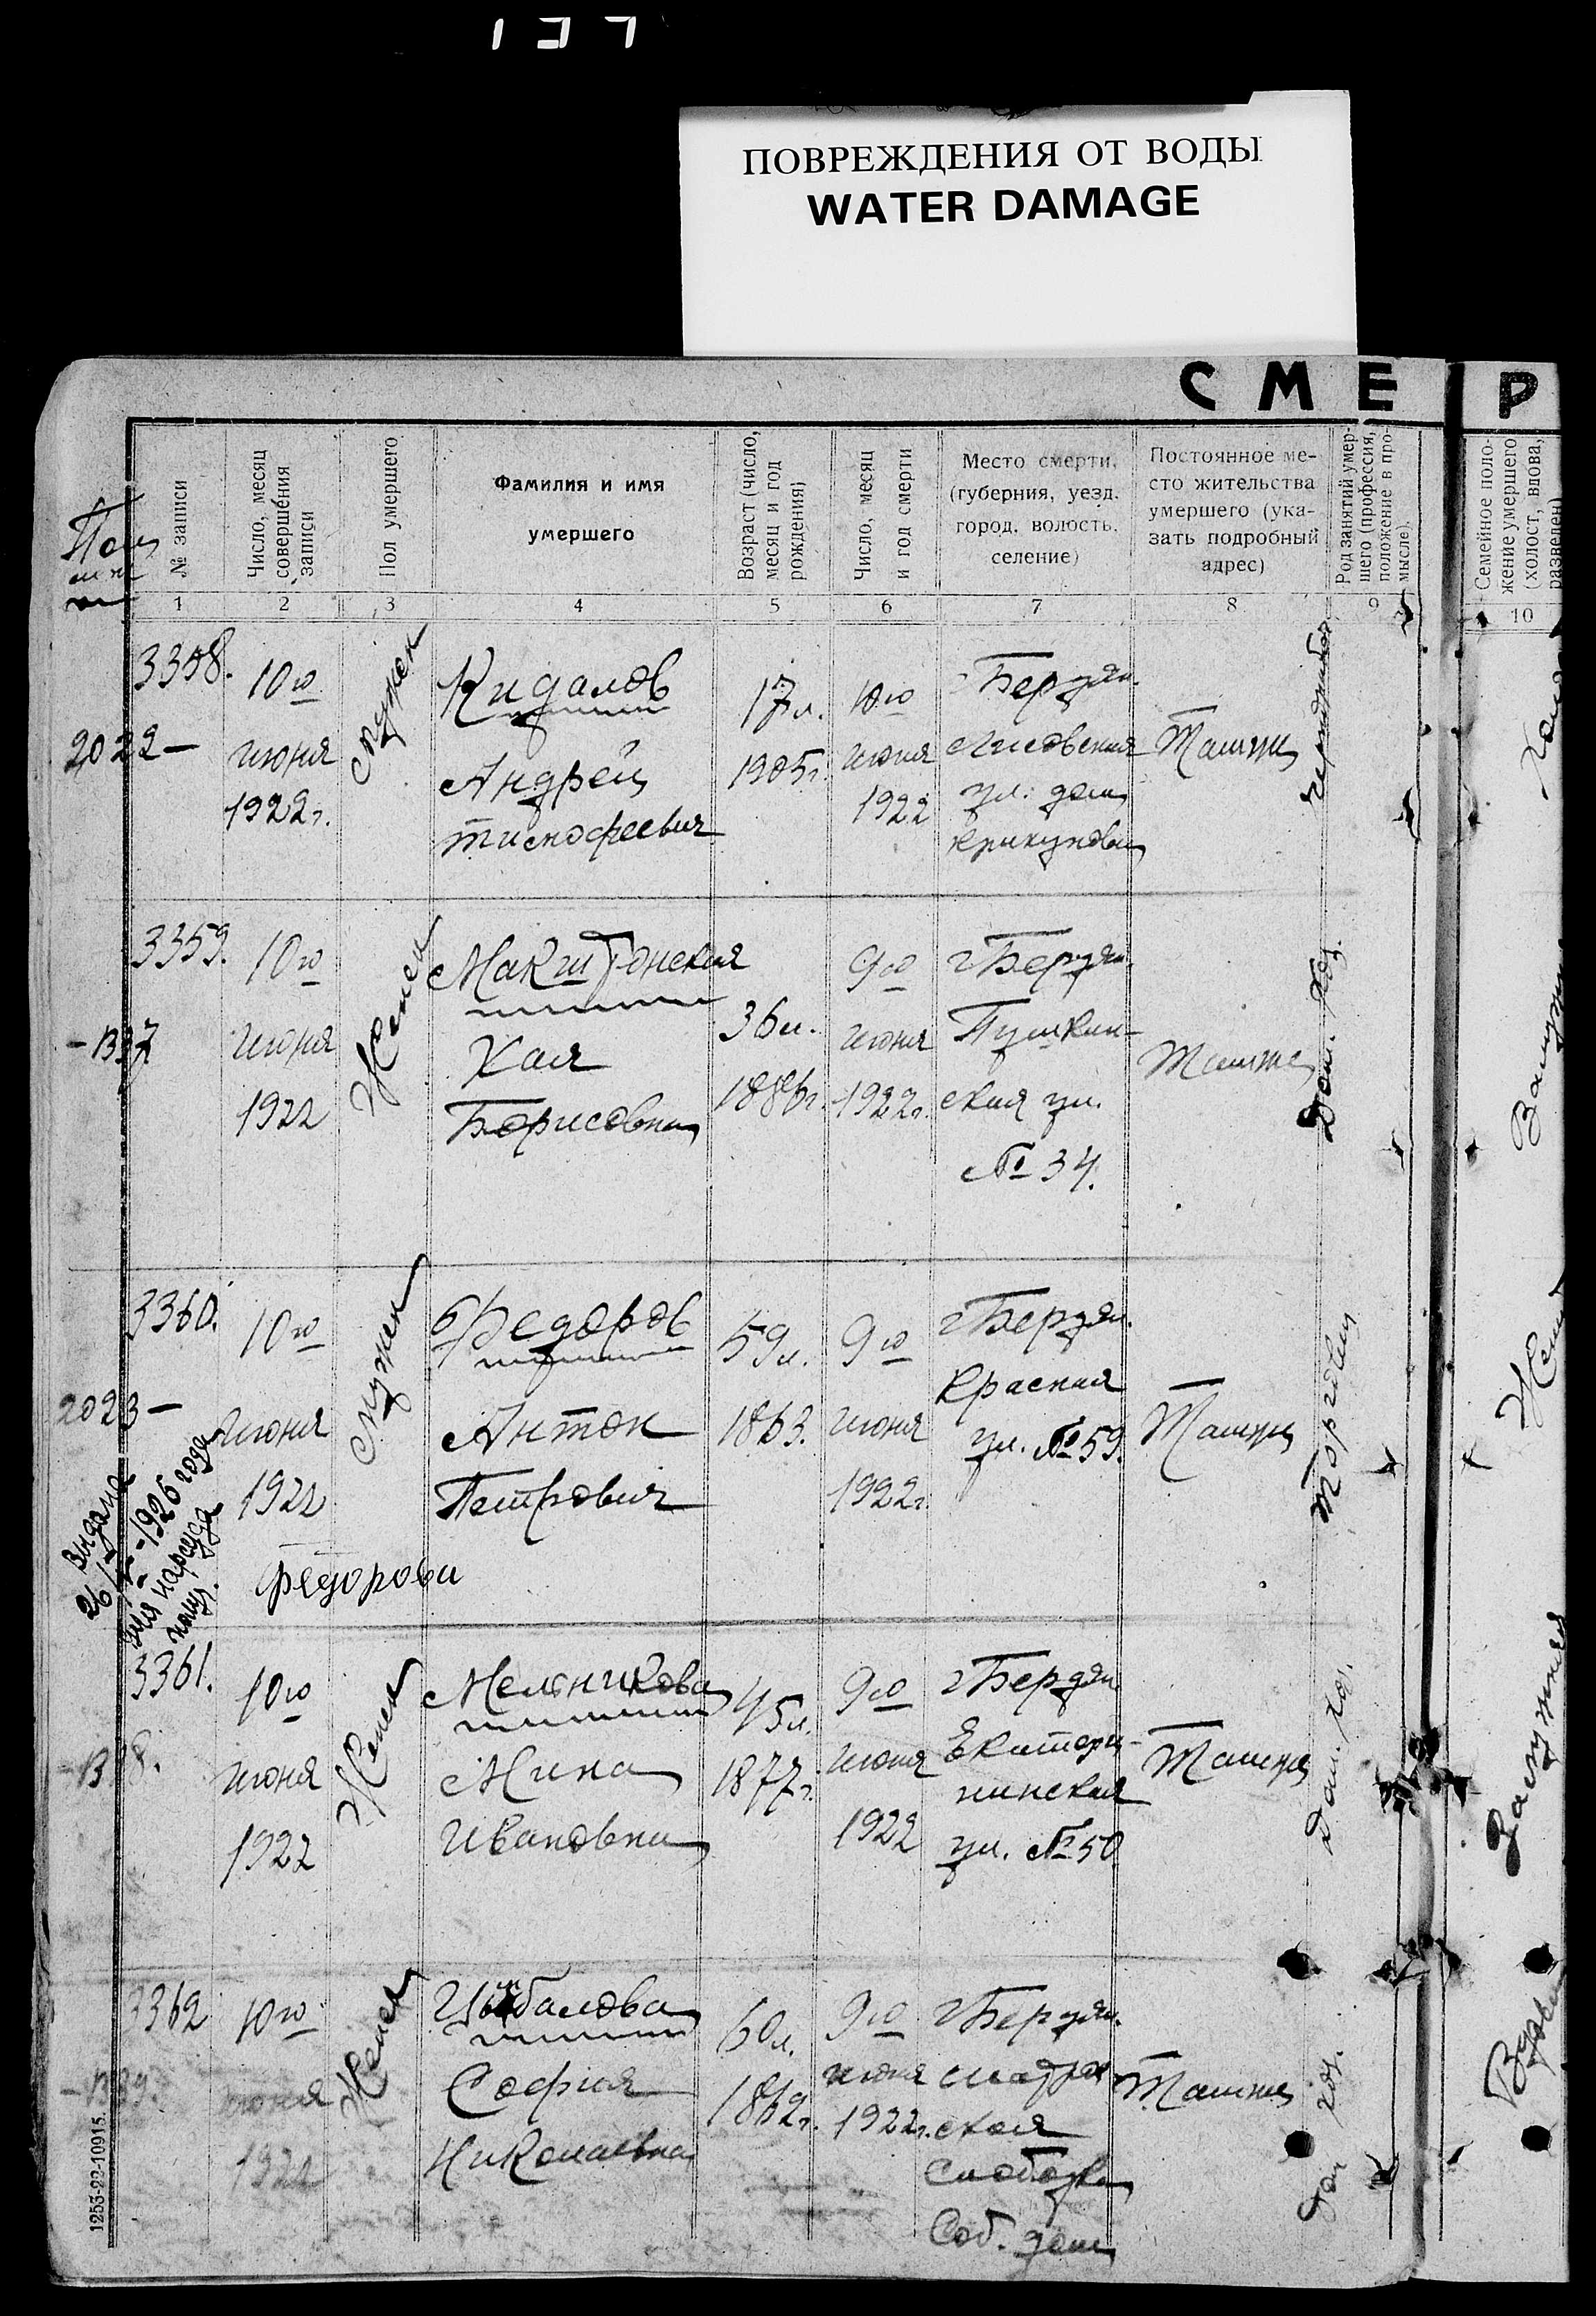 137
ПОВРЕЖДЕНИЯ ОТ ВОДЫ
WATER DAMAGE
СМЕ
Р
№ записи
Число, месяц совершения записи
Пол умершего
Фамилия и имя
умершего
Возраст (число, месяц и год рождения)
Число, месяц и год смерти
Место смерти,
(губерния, уезд.
город, волость,
селение)
Постоянное ме-
сто жительства
умершего (ука-
зать подробный
адрес)
Род занятий умер-
шего (профессия,
положение в про-
мысле).
Семейное поло-
жение умершего
(холост, вдова,
разведен)
1 2 3 4 5 6 7 8 9 10
3358.
2022 —
10го
июня
1922г.
мужск
Кидалов
Андрей
Тимофеевич
17л.
1905г.
10го
июня
1922
г Бердян.
Лисовская
ул: дом
Крикунова
Там же
3359.
- 1337
10го
июня
1922
Женск
Хая
Борисовна
36л.
1886г.
9го
июня
1922г.
г Бердян.
Пушкин-
ская ул.
№ 34.
Там же
Дом. хоз.
Замужн
3360.
2023 —
10го
июня
1922
мужск
Федоров
Антон
Петрович
59л.
1863.
9го
июня
1922г.
г Бердян.
Красная
ул. № 59.
Там же
Торговец
Женат
Выдана
-1926 года
Федорова
3361.
10го
июня
1922
Женск
Мельникова
Мина
Ивановна
45л.
1877г.
9го
июня
1922
г Бердян
Екатери-
нинская
ул. № 50
Там же
Дом. хоз.
Замужняя
3362
10го
июня
1922
Женск
София
Николаевна
60л.
1862г.
9го
июня
1922г.
г Бердян.
ская
Слободка
Соб. дом
Там же
Дом хоз.
Вдова
1253-22-10915